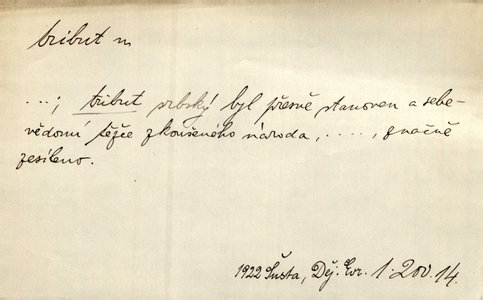 tribut m
...; tribut srbský byl přesně stanoven a sebe-
vědomí těžce zkoušeného národa, ...., značně
zesíleno.
1922 Šusta, Děj. Evr. 1.200.14.